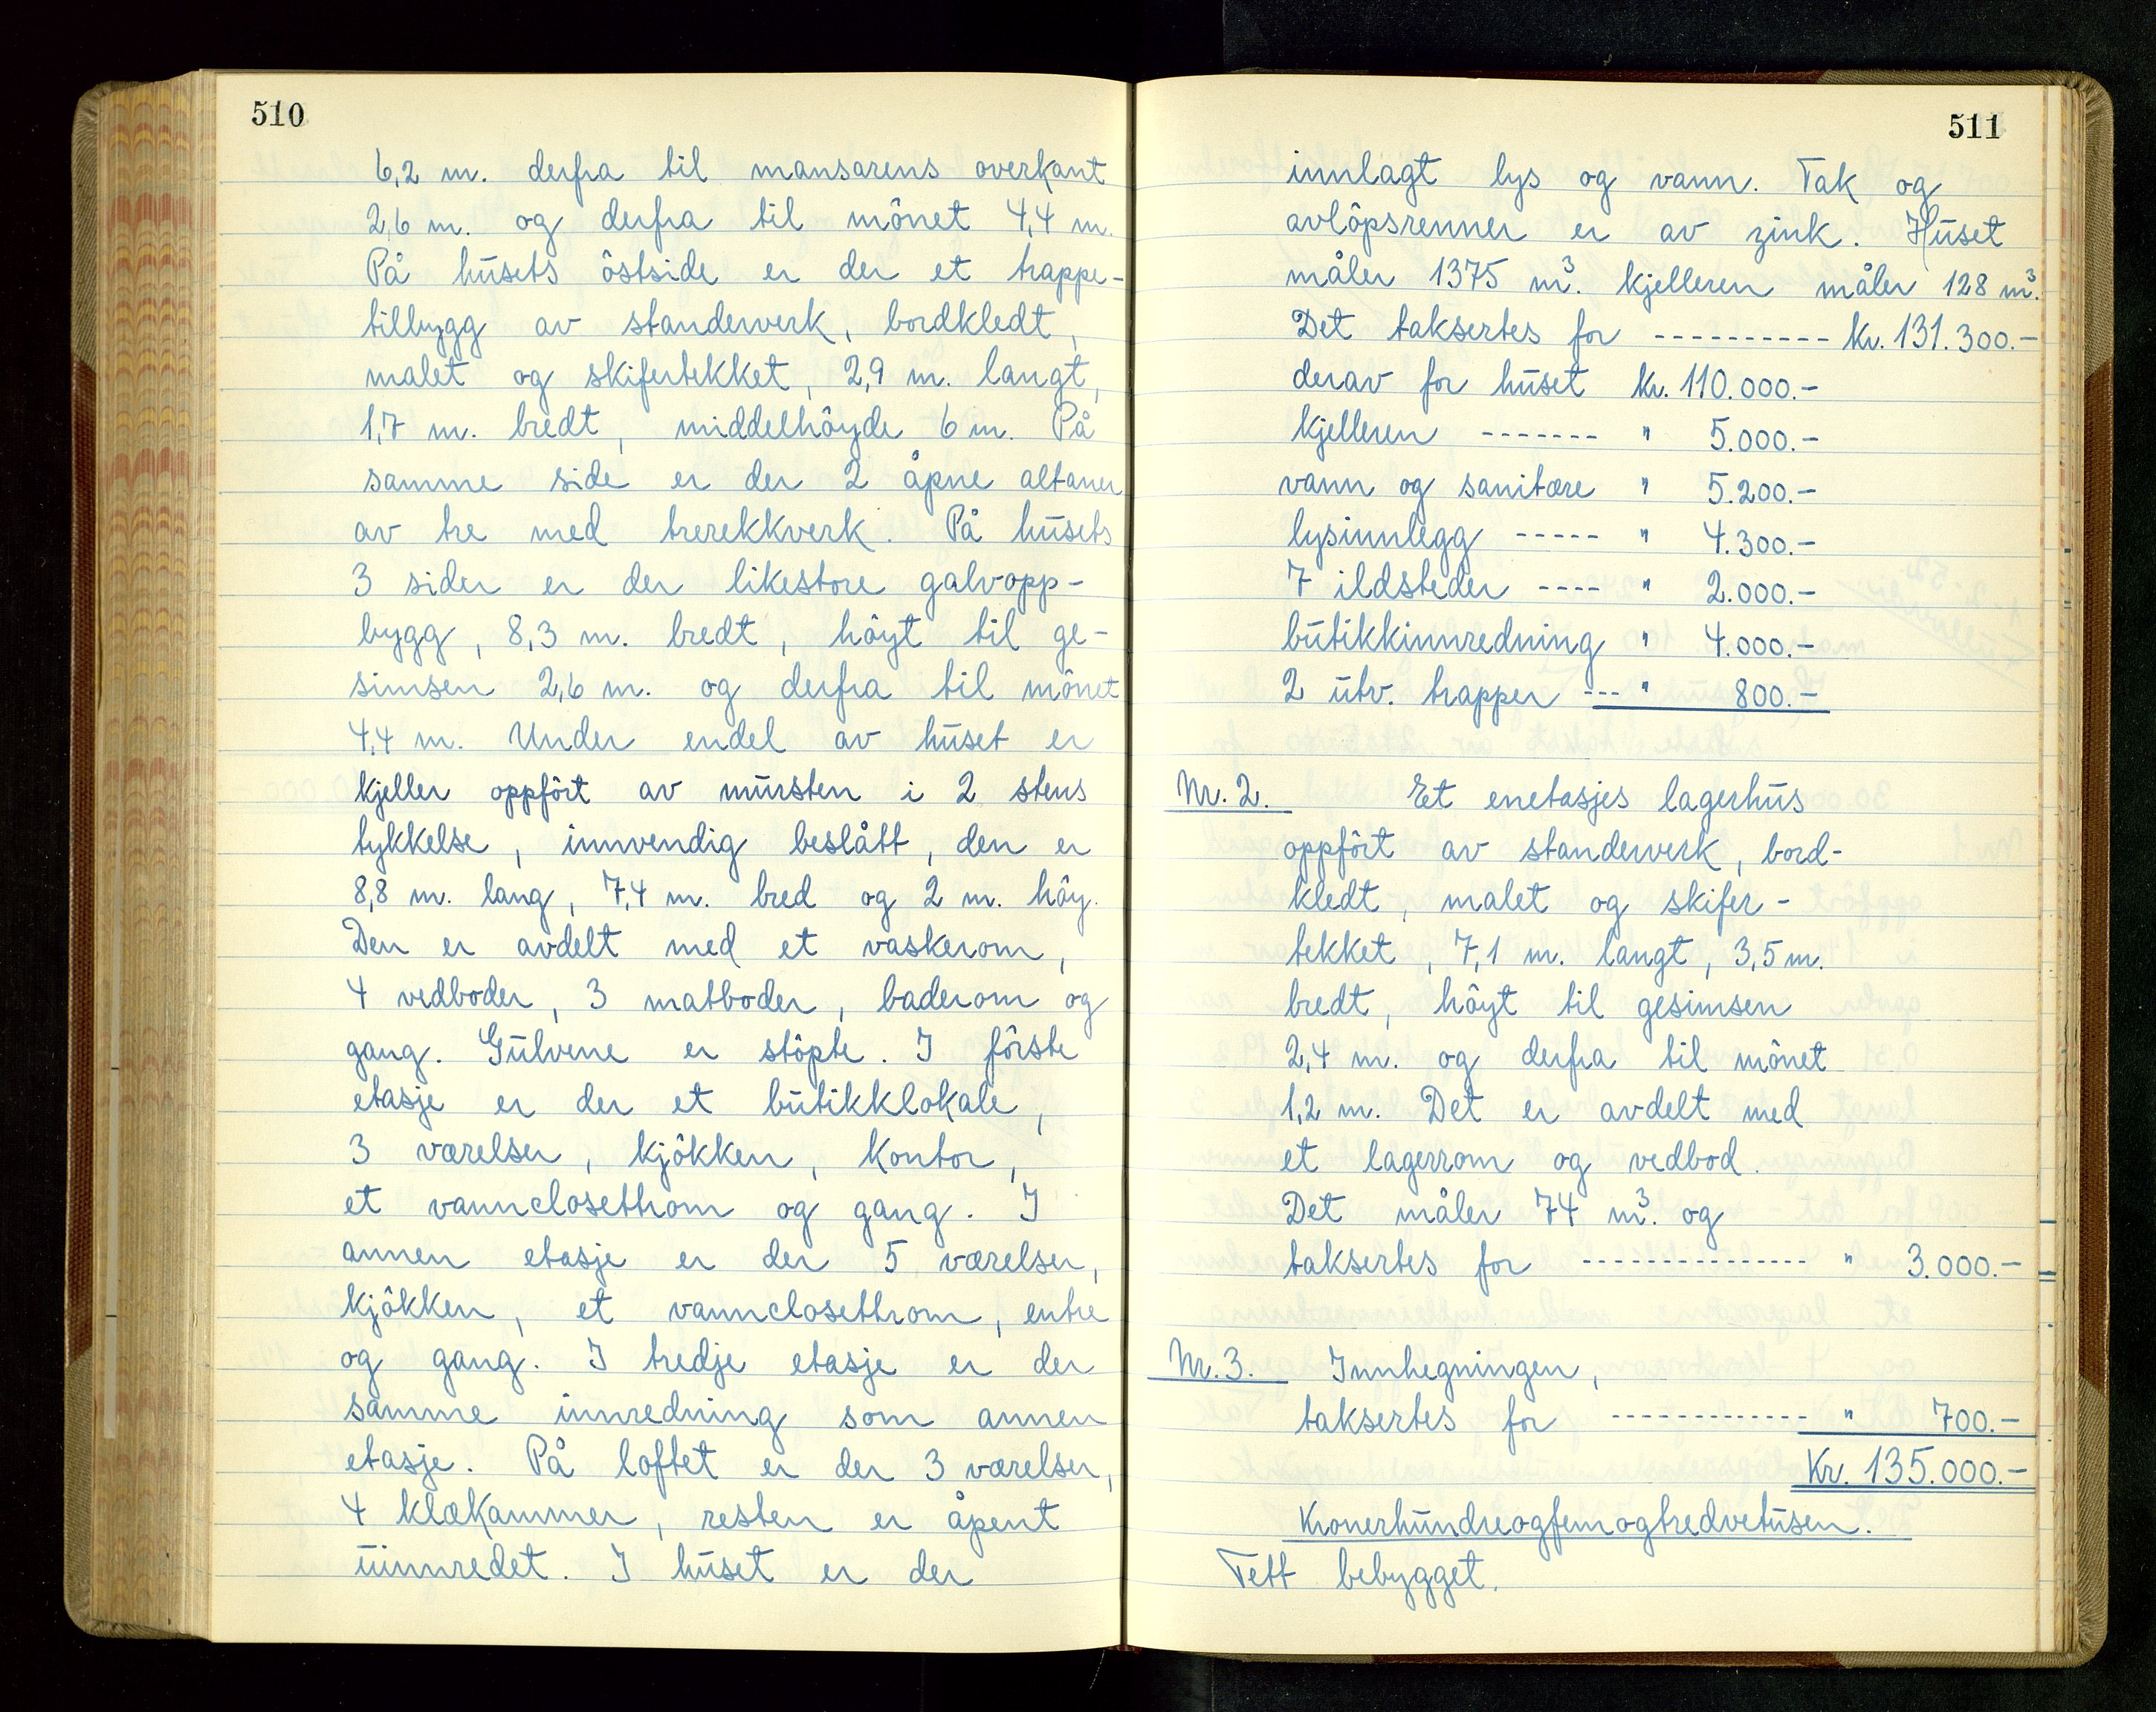 510
6,2 m. derfra til mansarens overkant
2,6 m. og derfra til mônet 4,4 m.
På husets ôstside er der et trappe-
tilbygg av standerverk, bordkledt,
malet og skifertekket, 2,9 m. langt,
1,7 m. bredt, middelhôyde 6 m. På
samme side er der 2 åpne altaner
av tre med trerekkverk. På husets
3 sider er der likestore galvopp-
bygg, 8,3 m. bredt, hôyt til ge-
simsen 2,6 m. og derfra til mônet
4,4 m. Under endel av huset er
kjeller oppfôrt av mursten i 2 stens
tykkelse, innvendig beslått, den er
8,8 m. lang, 7,4 m. bred og 2 m. hôy.
Den er avdelt med et vaskerom,
4 vedboder, 3 matboder, baderom og
gang. Gulvene er stôpte. I fôrste
etasje er der et butikklokale,
3 værelser, kjôkken, kontor,
et vannclosettrom og gang. I
annen etasje er der 5 værelser,
kjôkken, et vannclosettrom, entre
og gang. I tredje etasje er der
samme innredning som annen
etasje. På loftet er der 3 værelser,
4 klækammer, resten er åpent
uinnredet. I huset er der
511
innlagt lys og vann. Tak og
avlôpsrenner er av zink. Huset
måler 1375 m³. kjelleren måler 128 m³.
Det taksertes for ---------- kr. 131.300.-
derav for huset kr. 110.000.-
kjelleren ------- " 5.000.-
vann og sanitære " 5.200.-
lysinnlegg ----- " 4.300.-
7 ildsteder ---- " 2.000.-
butikkinnredning " 4.000.-
2 utv. trapper --- " 800.-
Nr. 2. Et enetasjes lagerhus
oppfôrt av standerverk, bord-
kledt, malet og skifer-
tekket, 7,1 m. langt, 3,5 m.
bredt, hôyt til gesimsen
2,4 m. og derfra til mônet
1,2 m. Det er avdelt med
et lagerrom og vedbod.
Det måler 74 m³. og
taksertes for --------------- " 3.000.-
Nr. 3. Innhegningen,
taksertes for ------------- " 700.-
Kr. 135.000.-
Kronerhundreogfemogtredvetusen.
Tett bebygget.